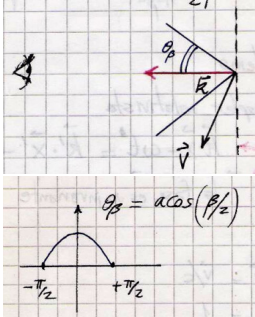 θᵦ
k⃗
v⃗
θᵦ = acos(β/2)
-π/2
+π/2